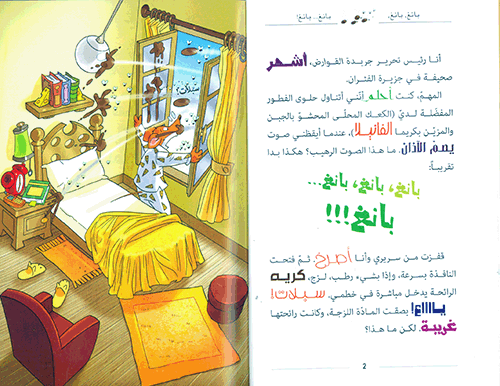 بانغ، بانغ، بانغ... بانغ!
أنا رئيس تحرير جريدة القوارض، أشهر
صحيفة في جزيرة الفئران.
المهمّ، كنت أحلم أنّني أتناول حلوى الفطور
المفضّلة لديّ (الكعك المحلّى المحشوّ بالجبن
والمزيّن بكريما الفانيلا)، عندما أيقظني صوت
يصمّ الآذان. ما هذا الصوت الرهيب؟ هكذا بدا
تقريباً:
بانغ، بانغ، بانغ...
بانغ!!!
قفزت من سريري وأنا أصرخ. ثمّ فتحت
النافذة بسرعة، وإذا بشيء رطب، لزج، كريه
الرائحة يدخل مباشرة في خطمي. سبلات!
ياااااع! بصقت المادّة اللزجة، وكانت رائحتها
غريبة. لكن ما هذا؟
2
سبلات!